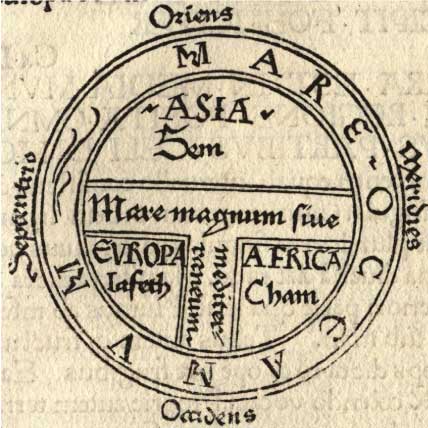 Oriens
MARE~OCCEANVM
ASIA
Sem
Septentrio
Meridies
Mare magnum ſiue
mediter
raneum
EVROPA
Iafeth
AFRICA
Cham
Occidens